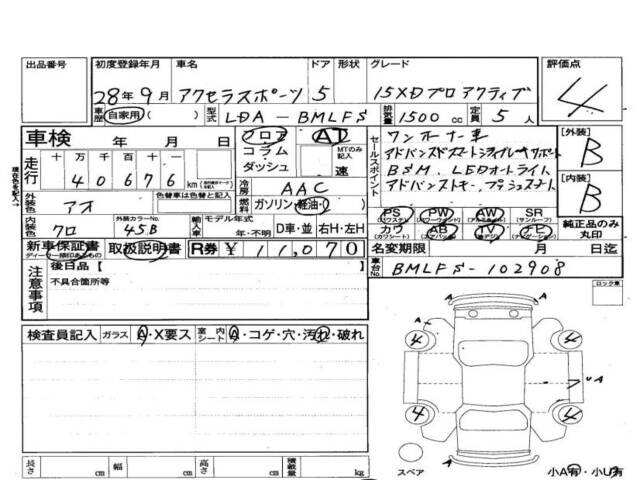 出品番号 初度登録年月 車名 ドア 形状 グレード 評価点
28年9月 アクセラスポーツ 5 15XDプロアクティブ 4
車歴 自家用 ( ) 型式 LDA-BMLFS 排気量 1500 cc 定員 5 人
車検 年 月 日 フロア コラム ダッシュ AT MTのみ記入 速
セールスポイント ワンオーナー車
BSM. LEDオートライト
[外装] B
走行 十 万 千 百 十 一
4 0 6 7 6 km
現在色を記入→
冷房 AAC
[内装] B
外装色 アオ 色替車は色替えと記入 燃料 ガソリン・軽油・( )
内装色 クロ 外装カラーNo. 45B 輸入車 モデル年式 年・不明 D車・並 右H・左H
PS (パワステ) PW (パワーウィンド) AW (アルミホイール) SR (サンルーフ)
カワ (カワシート) AB (エアバッグ) TV ナビ (ナビゲーション) 純正品のみ丸印
新車保証書 取扱説明書 R券 ¥11,070 名変期限 月 日迄
車台No. BMLFS-102908
注意事項 後日品【 】
不具合箇所等
ロック車
検査員記入 ガラス A・X要ス 室内シート A・コゲ・穴・汚れ・破れ
A A
A 4 4
UA
4 4
スペア
小A有・小U有
長さ cm 幅 cm 高さ cm 積載量 kg